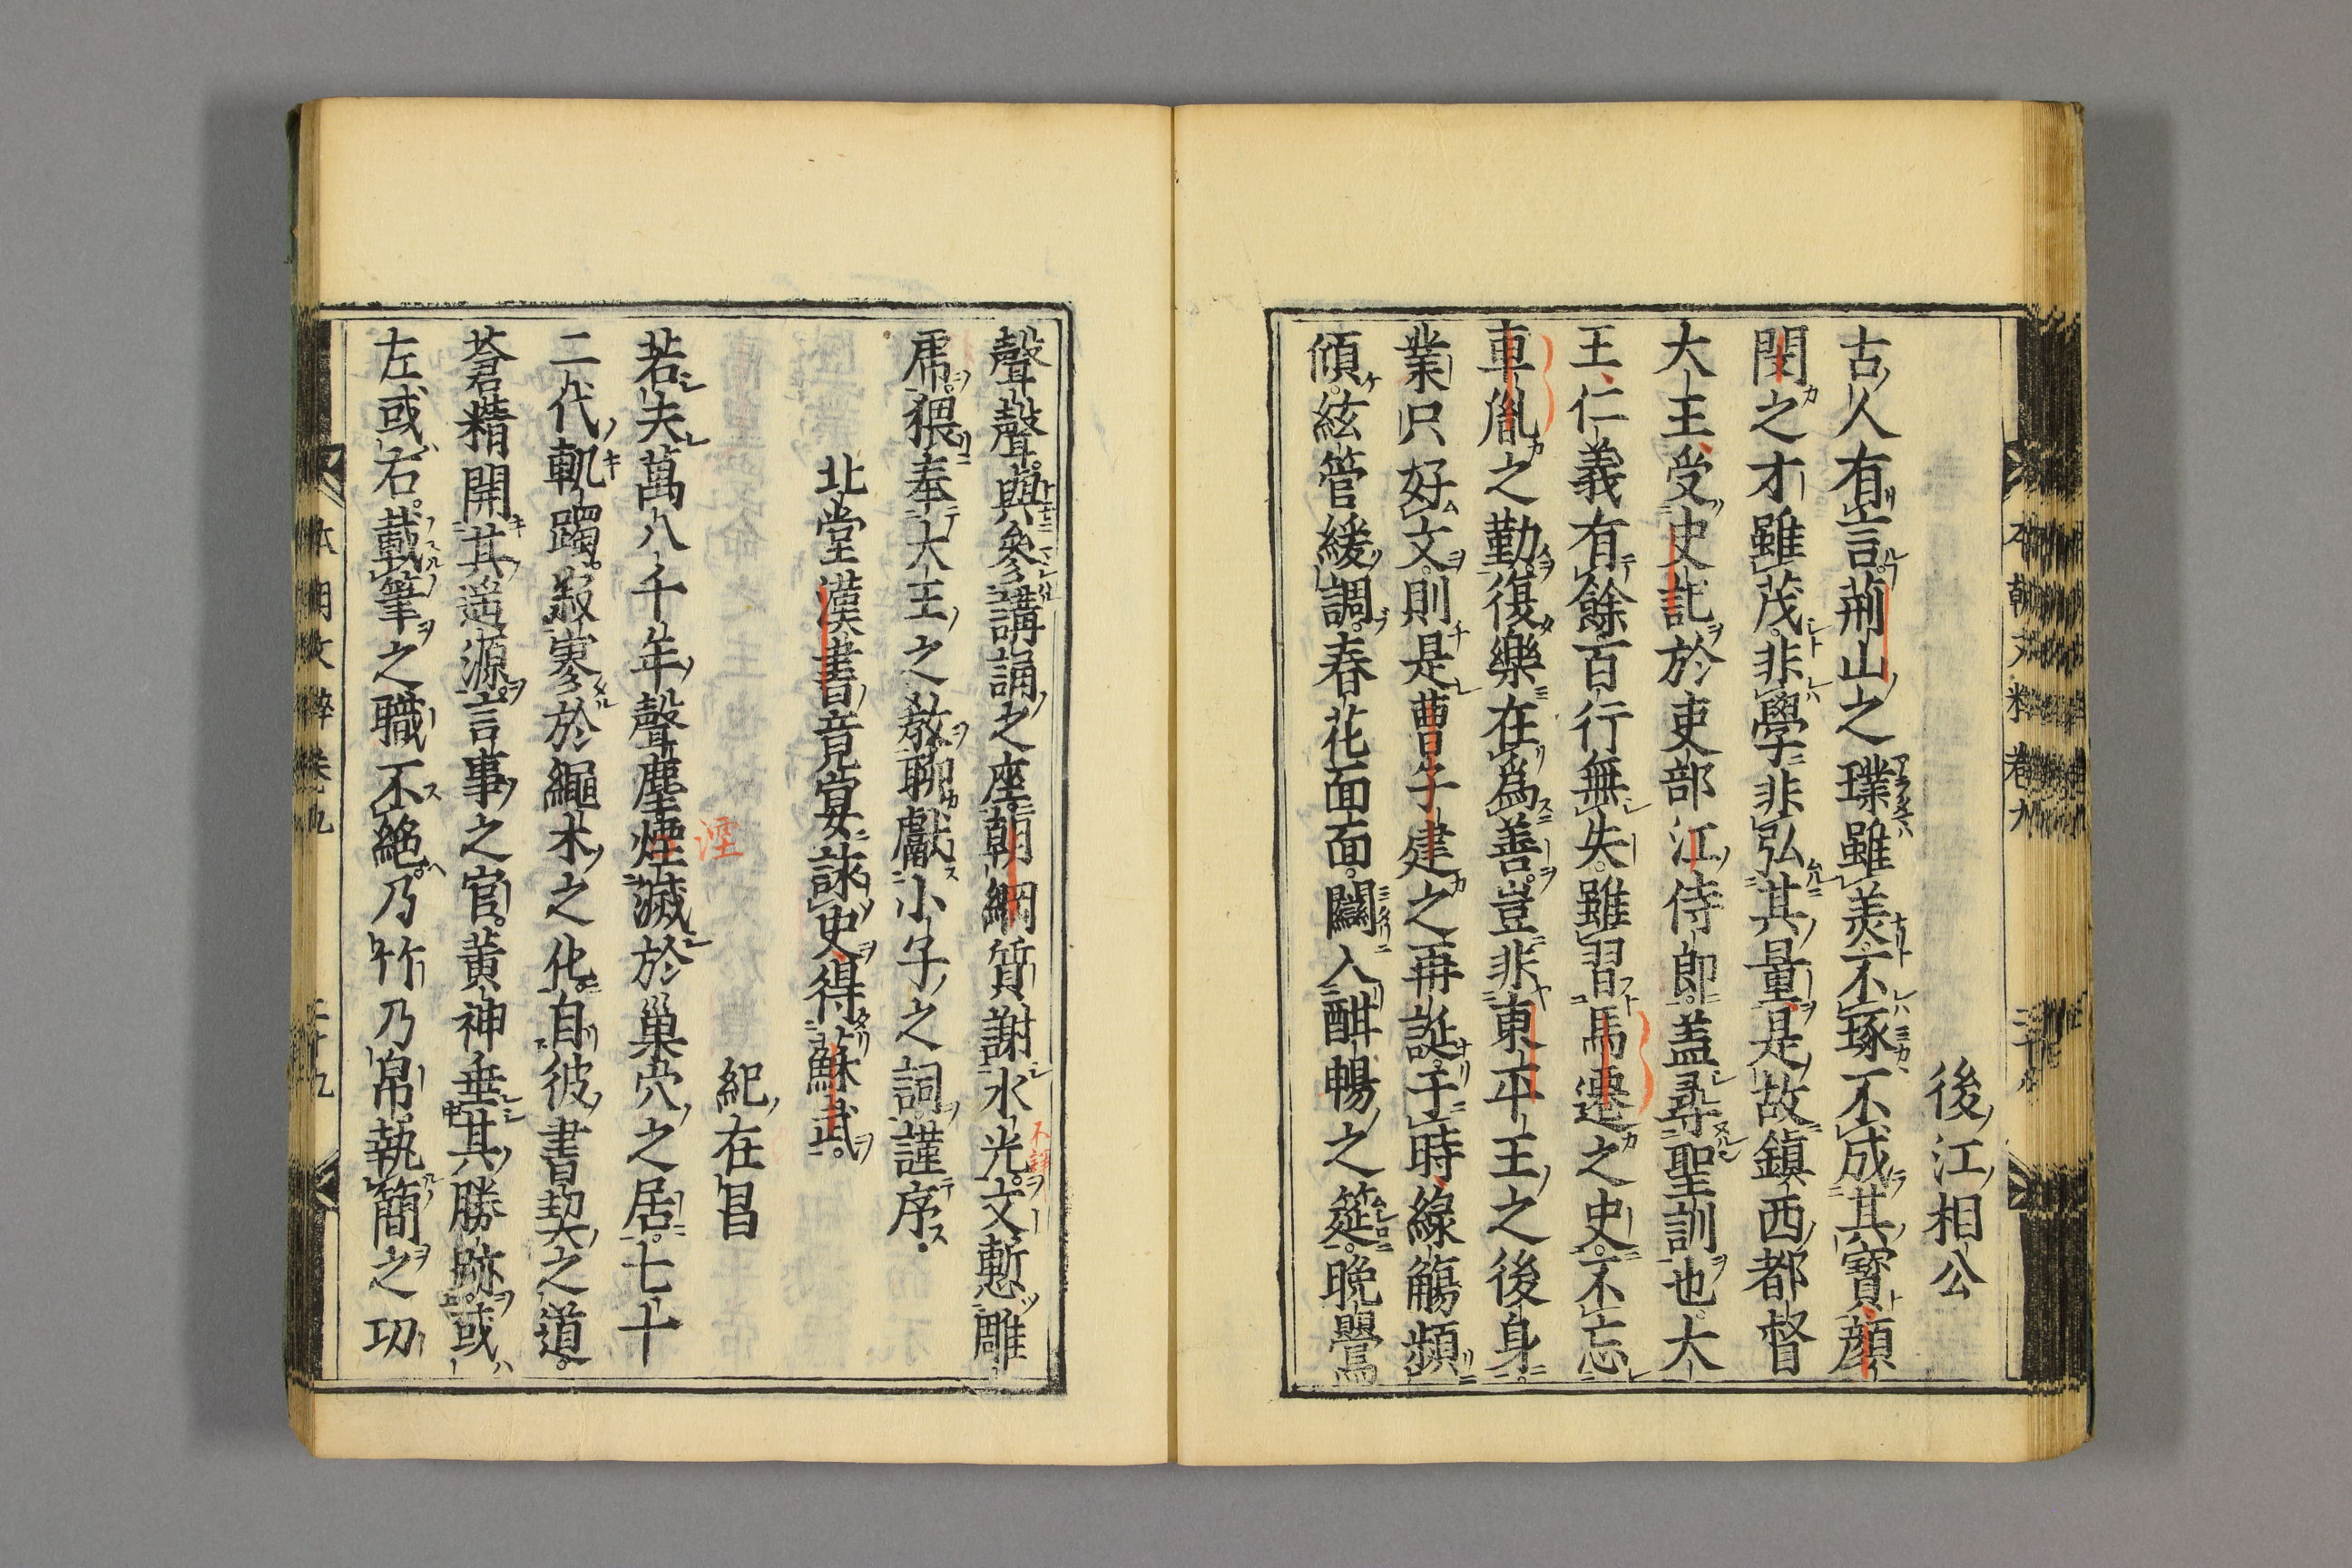 後江相公
古人有言荊山之璞雖美不琢不成其寶顔
閔之才雖茂非學非弘其量是故鎮西都督
大王受史記於吏部江侍郎蓋尋聖訓也大
王仁義有餘百行無失雖習馬遷之史不忘
車胤之勤復樂在爲善豈非東平王之後身
業只好文則是曹子建之再誕于時綠觴頻
傾絃管緩調春花面面闌入酣暢之筵晩鶯
聲聲與參講誦之座朝綱質謝氷光文慙雕
乕猥奉大王之敎聊獻小子之詞謹序
北堂漢書竟宴詠史得蘇武
紀在昌
若夫萬八千年聲塵煙滅於巢穴之居七十
湮
二代軌躅寂寥於繩木之化自彼書契之道
蒼精開其遥源言事之官黄神垂其勝跡或
左或右載筆之職不絶乃竹乃帛執簡之功
本朝文粹卷九
本朝文粹卷九